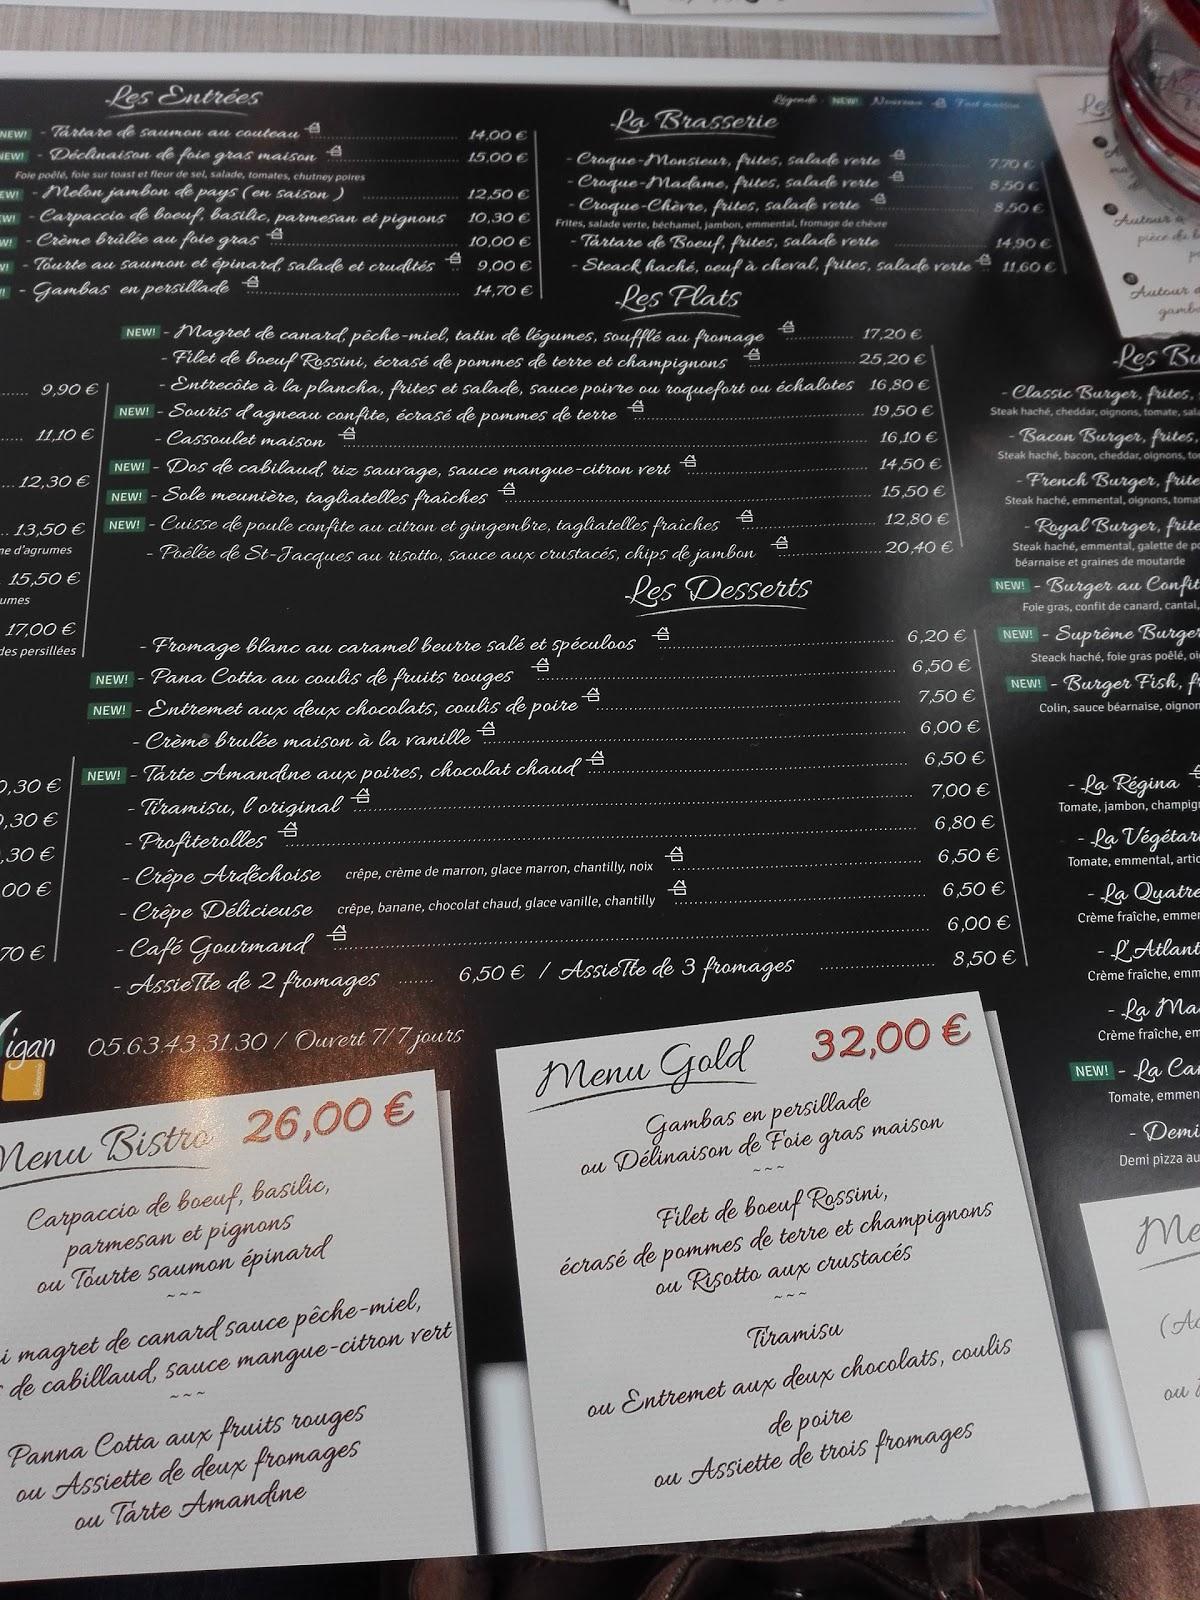 Les Entrées
NEW! - Tartare de saumon au couteau 14,00 €
NEW! - Déclinaison de foie gras maison 15,00 €
Foie poêlé, foie sur toast et fleur de sel, salade, tomates, chutney poires
- Melon jambon de pays (en saison) 12,50 €
- Carpaccio de boeuf, basilic, parmesan et pignons 10,30 €
- Crème brûlée au foie gras 10,00 €
- Tourte au saumon et épinard, salade et crudités 9,00 €
- Gambas en persillade 14,70 €
Légende : NEW! Nouveau Fait maison
La Brasserie
- Croque-Monsieur, frites, salade verte 7,70 €
- Croque-Madame, frites, salade verte 8,50 €
- Croque-Chèvre, frites, salade verte 8,50 €
Frites, salade verte, béchamel, jambon, emmental, fromage de chèvre
- Tartare de Boeuf, frites, salade verte 14,90 €
- Steack haché, oeuf à cheval, frites, salade verte 11,60 €
Les Plats
NEW! - Magret de canard, pêche-miel, tatin de légumes, soufflé au fromage 17,20 €
- Filet de boeuf Rossini, écrasé de pommes de terre et champignons 25,20 €
- Entrecôte à la plancha, frites et salade, sauce poivre ou roquefort ou échalotes 16,80 €
NEW! - Souris d'agneau confite, écrasé de pommes de terre 19,50 €
- Cassoulet maison 16,10 €
NEW! - Dos de cabilaud, riz sauvage, sauce mangue-citron vert 14,50 €
NEW! - Sole meunière, tagliatelles fraîches 15,50 €
NEW! - Cuisse de poule confite au citron et gingembre, tagliatelles fraîches 12,80 €
- Poêlée de St-Jacques au risotto, sauce aux crustacés, chips de jambon 20,40 €
Les Desserts
- Fromage blanc au caramel beurre salé et spéculoos 6,20 €
NEW! - Pana Cotta au coulis de fruits rouges 6,50 €
NEW! - Entremet aux deux chocolats, coulis de poire 7,50 €
- Crème brulée maison à la vanille 6,00 €
NEW! - Tarte Amandine aux poires, chocolat chaud 6,50 €
- Tiramisu, l'original 7,00 €
- Profiterolles 6,80 €
- Crêpe Ardéchoise crêpe, crème de marron, glace marron, chantilly, noix 6,50 €
- Crêpe Délicieuse crêpe, banane, chocolat chaud, glace vanille, chantilly 6,50 €
- Café Gourmand 6,00 €
- Assiette de 2 fromages 6,50 € / Assiette de 3 fromages 8,50 €
9,90 €
11,10 €
12,30 €
13,50 €
d'agrumes
15,50 €
17,00 €
persillées
,30 €
,30 €
,30 €
,00 €
,70 €
igan 05.63.43.31.30 / Ouvert 7/7 jours
Menu Bistro 26,00 €
Carpaccio de boeuf, basilic,
parmesan et pignons
ou Tourte saumon épinard
~~~
magret de canard sauce pêche-miel,
de cabillaud, sauce mangue-citron vert
~~~
Panna Cotta aux fruits rouges
ou Assiette de deux fromages
ou Tarte Amandine
Menu Gold 32,00 €
Gambas en persillade
ou Délinaison de Foie gras maison
~~~
Filet de boeuf Rossini,
écrasé de pommes de terre et champignons
ou Risotto aux crustacés
~~~
Tiramisu
ou Entremet aux deux chocolats, coulis
de poire
ou Assiette de trois fromages
Autour
pièce
Autour
Les Bu
- Classic Burger, frites,
Steak haché, cheddar, oignons, tomate,
- Bacon Burger, frites,
Steak haché, bacon, cheddar, oignons,
- French Burger,
Steak haché, emmental, oignons,
- Royal Burger,
Steak haché, emmental, galette de
béarnaise et graines de moutarde
NEW! - Burger au Confit
Foie gras, confit de canard, cantal,
NEW! - Suprême Burger
Steack haché, foie gras poêlé,
NEW! - Burger Fish,
Colin, sauce béarnaise,
- La Régina
Tomate, jambon,
- La
Tomate, emmental,
- La Quatre
Crème fraîche,
-
Crème fraîche,
- La
Crème fraîche,
NEW! - La
Tomate,
- Demi
Demi pizza
ou